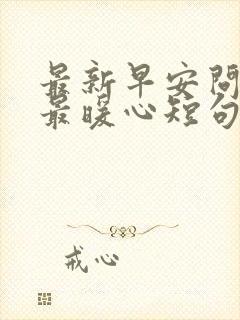 最新早安问
最暖心短句
戒心